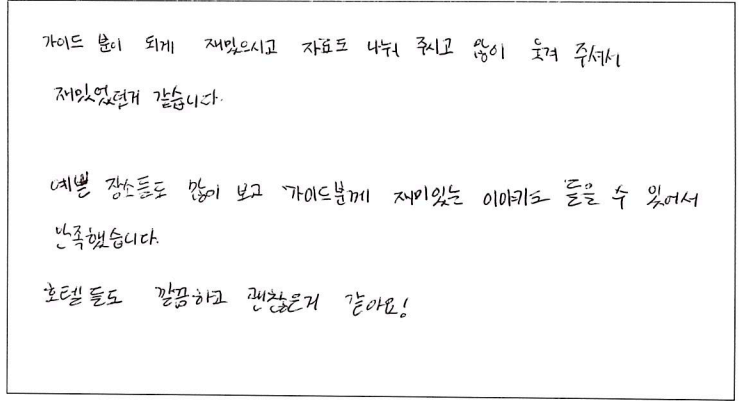 가이드 분이 되게 재밌으시고 자료도 나눠 주시고 많이 웃겨 주셔서
재밌었던거 같습니다.
예쁜 장소들도 많이 보고 가이드분께 재미있는 이야기도 들을 수 있어서
만족했습니다.
호텔들도 깔끔하고 괜찮은거 같아요!